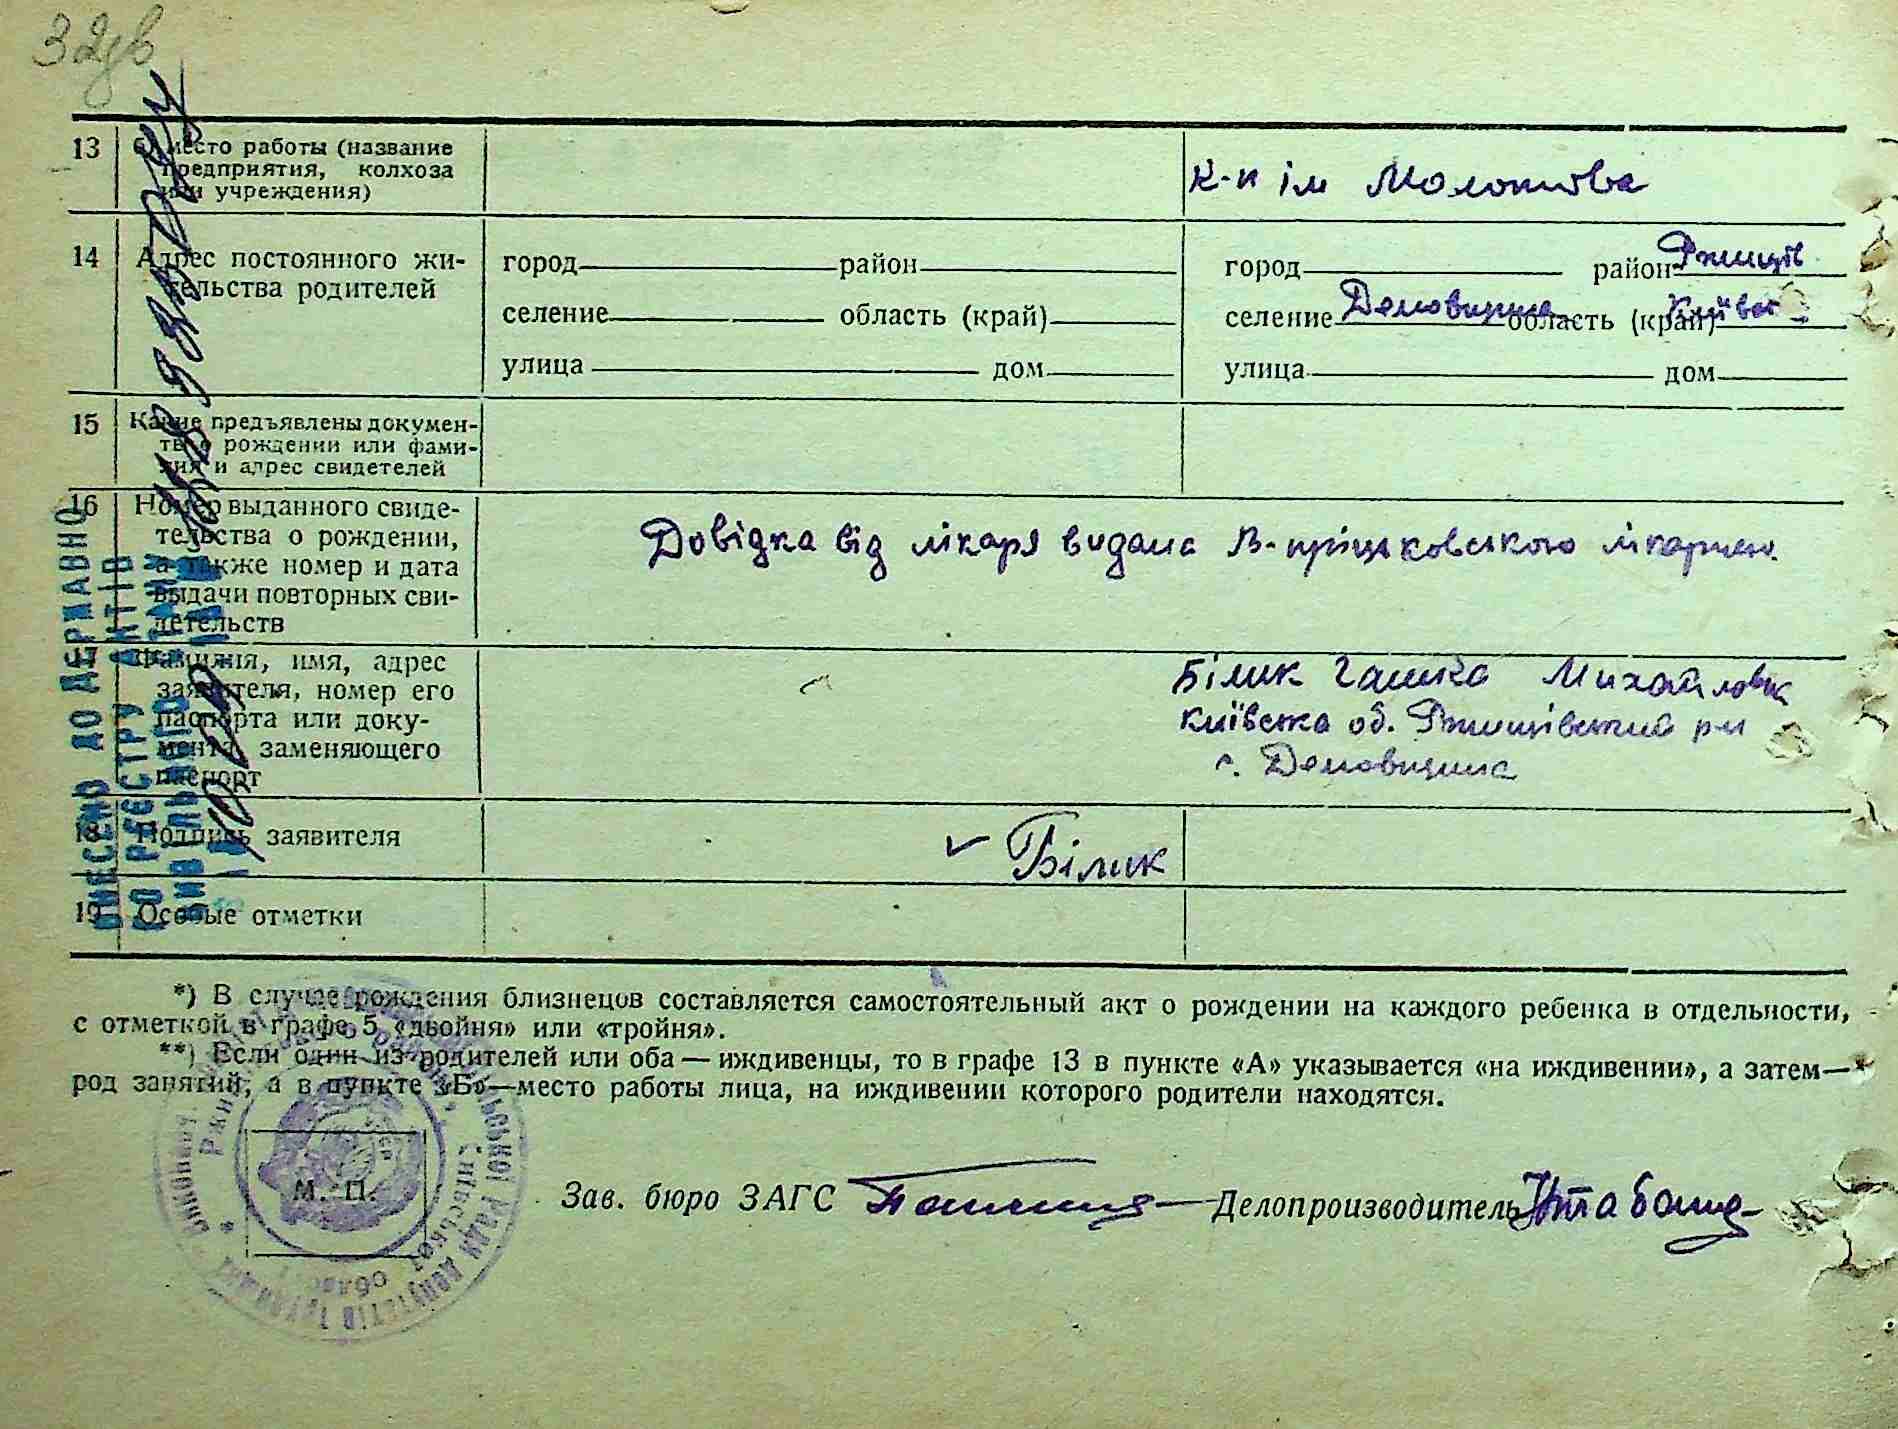 32зв
13 б) место работы (название
предприятия, колхоза
или учреждения)
К-п ім Молотова
14 Адрес постоянного жи-
тельства родителей
город район
селение область (край)
улица дом
город район Ржищів
селение Демовщина область (край) Київс
улица дом
15 Какие предъявлены докумен-
ты о рождении или фами-
лия и адрес свидетелей
16 Номер выданного свиде-
тельства о рождении,
а также номер и дата
выдачи повторных сви-
детельств
Довідка від лікаря видана В-прицьковською лікарнею
17 Фамилия, имя, адрес
заявителя, номер его
паспорта или доку-
мента, заменяющего
паспорт
Білик Ганна Михайлов
Київська об. Ржищівський р-н
с. Демовщина
18 Подпись заявителя
Білик
19 Особые отметки
ВНЕСЕНО ДО ДЕРЖАВНО
ГО РЕЄСТРУ АКТІВ
ЦИВІЛЬНОГО СТАНУ
*) В случае рождения близнецов составляется самостоятельный акт о рождении на каждого ребенка в отдельности,
с отметкой в графе 5 «двойня» или «тройня».
**) Если один из родителей или оба — иждивенцы, то в графе 13 в пункте «А» указывается «на иждивении», а затем—
род занятий, а в пункте «Б»—место работы лица, на иждивении которого родители находятся.
М. П.
Зав. бюро ЗАГС Делопроизводитель